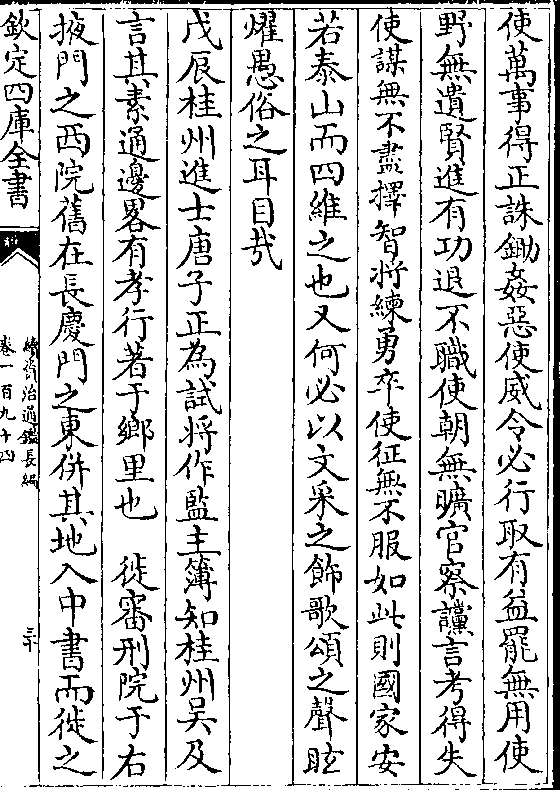 使萬事得正誅鋤姦惡使威令必行取有益罷無用使
野無遺賢進有功退不職使朝無曠官察讜言考得失
使謀無不盡擇智将練勇卒使征無不服如此則國家安
若泰山而四維之也又何必以文采之飾歌頌之聲眩
燿愚俗之耳目哉
戊辰桂州進士唐子正為試将作監主簿知桂州吳及
言其素通邊畧有孝行著于鄉里也　徙審刑院于右
掖門之西院舊在長慶門之東併其地入中書而徙之
欽定四庫全書
續資治通鑑長編
卷一百九十四
三十